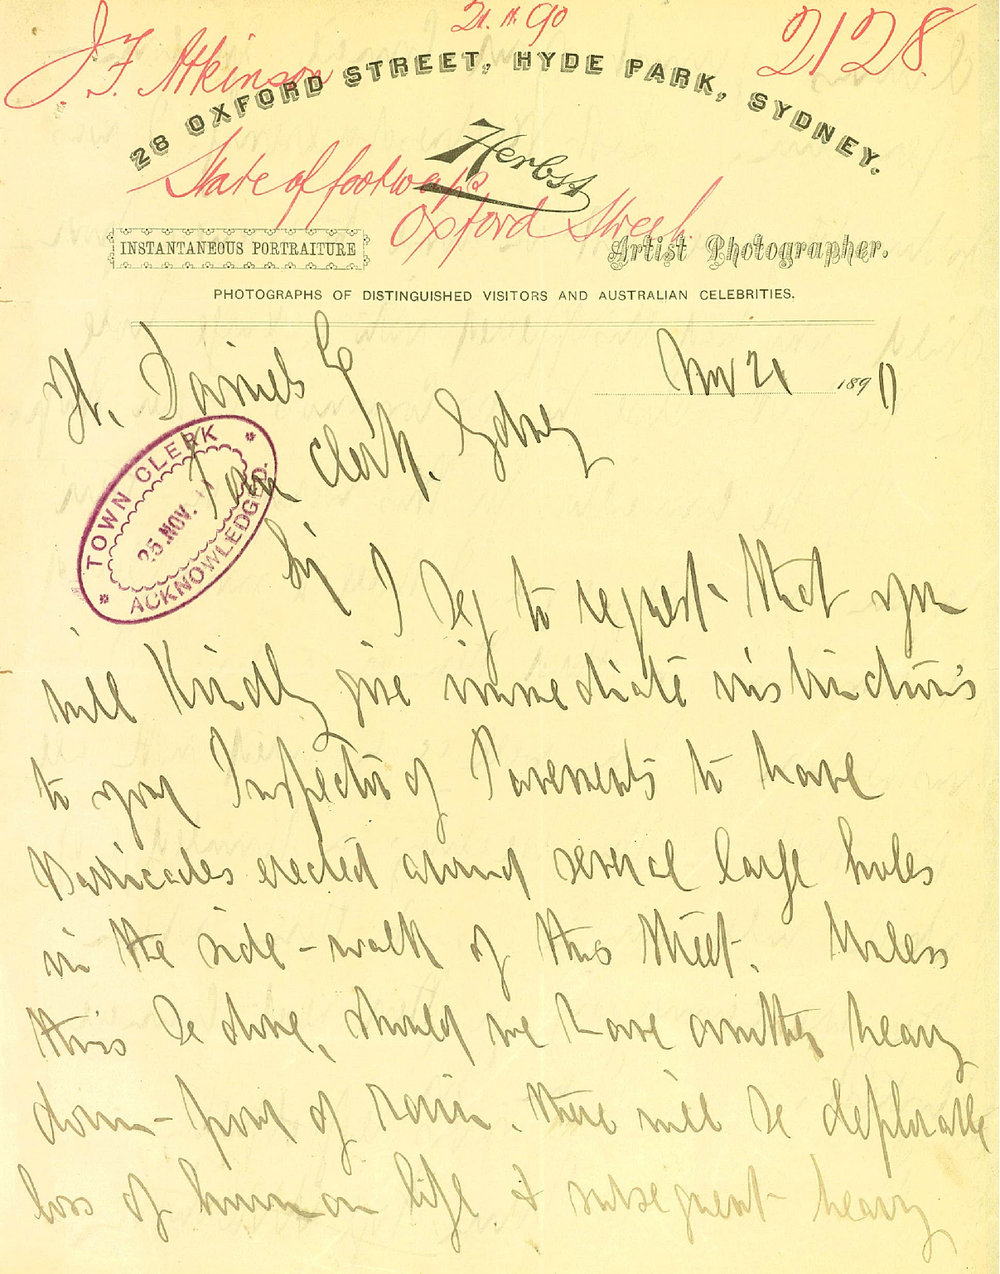 21.11.90
J. F. Atkinson
2128.
28 OXFORD STREET, HYDE PARK, SYDNEY.
Herbst
State of footways
Oxford Street.
INSTANTANEOUS PORTRAITURE
Artist Photographer.
PHOTOGRAPHS OF DISTINGUISHED VISITORS AND AUSTRALIAN CELEBRITIES.
Nov 21 1890
H. Daniels Eq
Town Clerk. Sydney
TOWN CLERK
25 NOV.
ACKNOWLEDGED.
Sir I beg to request that you
will Kindly give immediate instructions
to your Inspector of Pavements to have
Barricades erected around several large holes
in the side-walk of this Street. Unless
this be done, should we have another heavy
down-pour of rain. there will be deplorable
loss of human life. & subsequent heavy